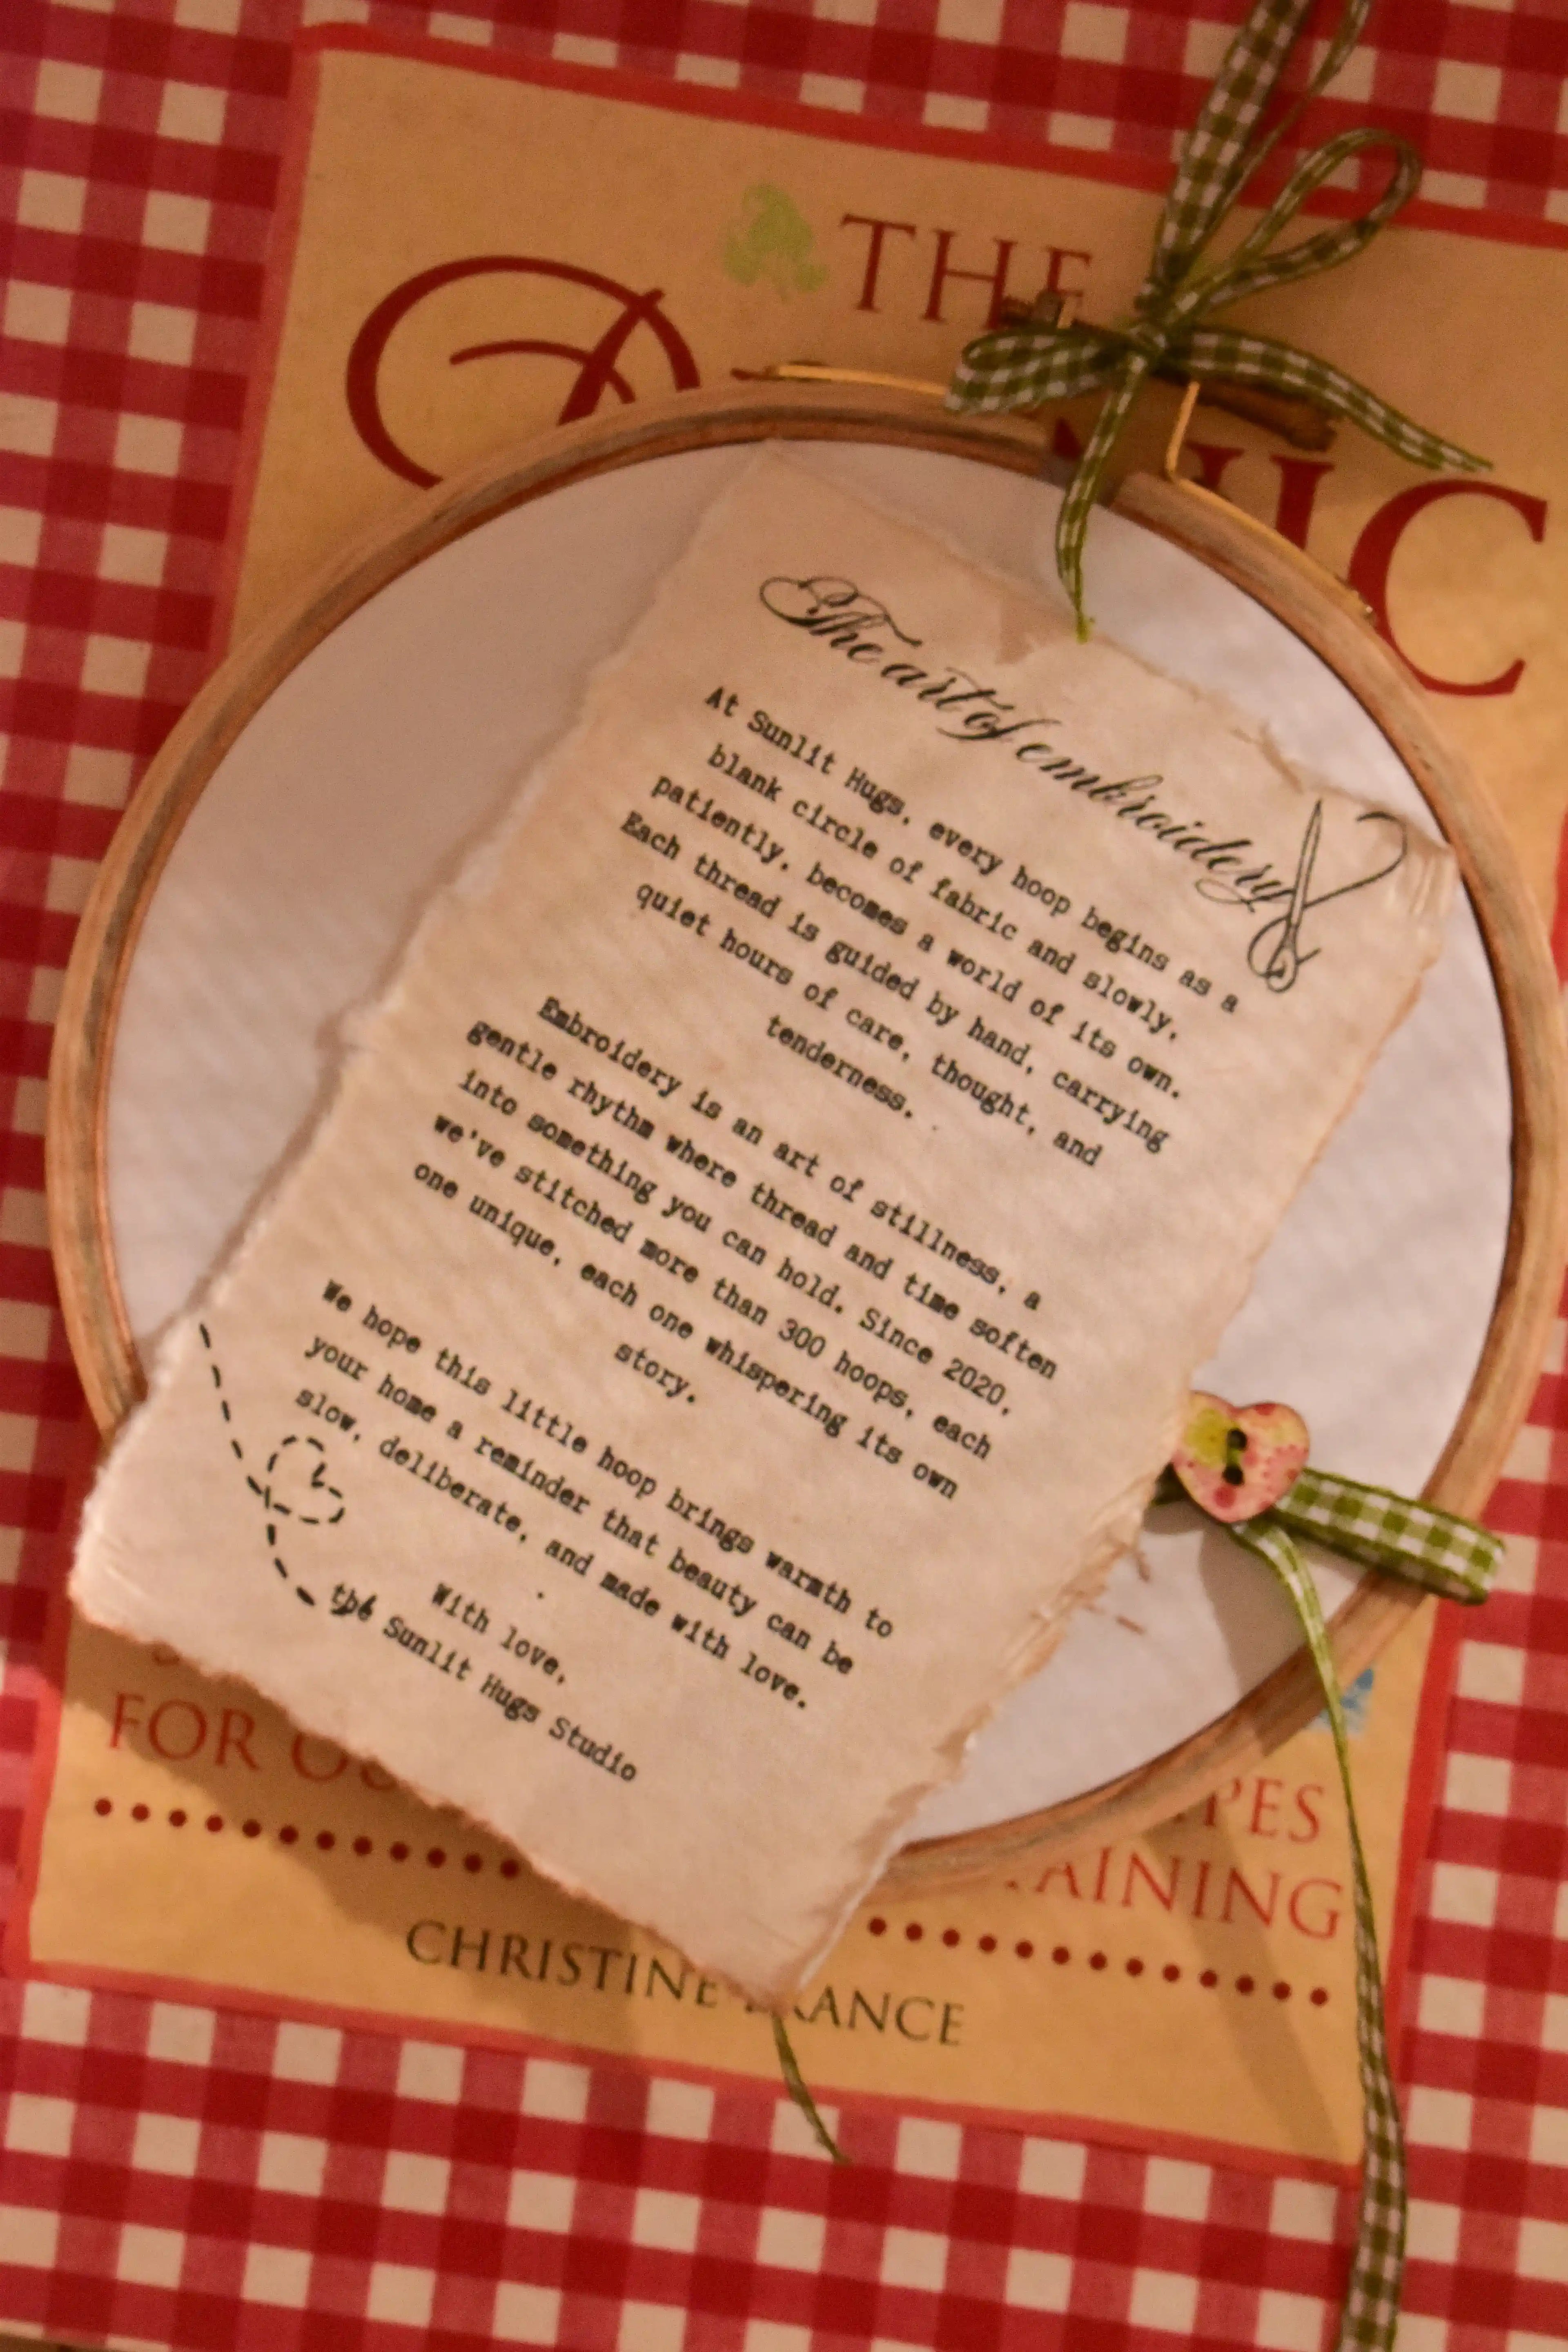 THE
NIC
The art of embroidery
At Sunlit Hugs, every hoop begins as a
blank circle of fabric and slowly,
patiently, becomes a world of its own.
Each thread is guided by hand, carrying
quiet hours of care, thought, and
tenderness.
Embroidery is an art of stillness, a
gentle rhythm where thread and time soften
into something you can hold. Since 2020,
we've stitched more than 300 hoops, each
one unique, each one whispering its own
story.
We hope this little hoop brings warmth to
your home a reminder that beauty can be
slow, deliberate, and made with love.
With love,
the Sunlit Hugs Studio
FOR
CHRISTINE